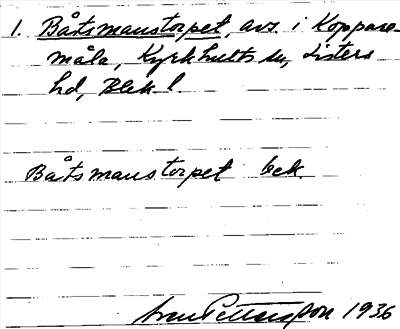 1. Båtsmanstorpet, avs. i Koppare-
måla, Kyrkhults sn, Listers
hd, Blek. l.
Båtsmanstorpet bek.
Pettersson 1936